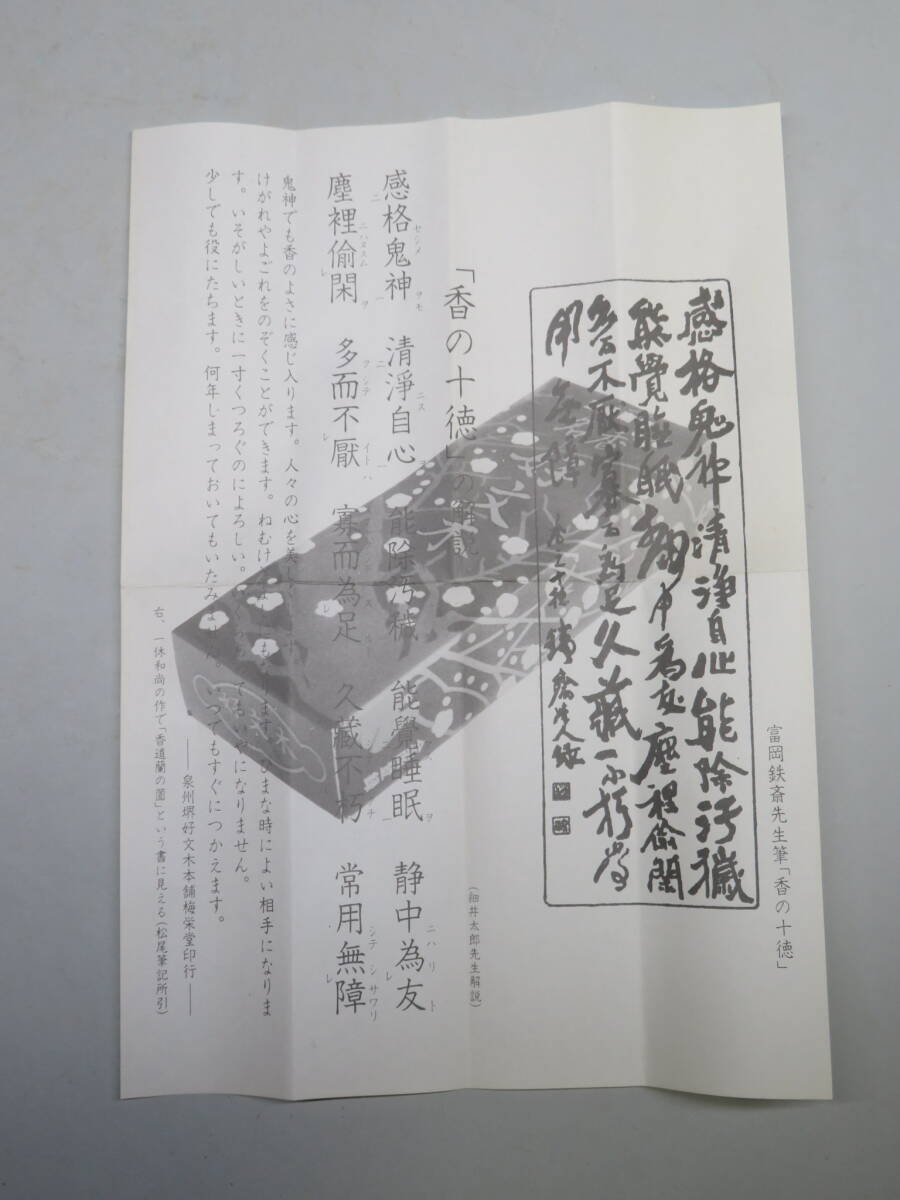 富岡鉄斎先生筆「香の十徳」
感格鬼神清淨自心能除汚穢
能覺睡眠静中為友塵裡偸閑
多而不厭寡而為足久藏不朽常
用無障
「香の十徳」の解説
(細井太郎先生解説)
感格鬼神 清淨自心 能除汚穢 能覺睡眠 静中為友
塵裡偷閑 多而不厭 寡而為足 久藏不朽 常用無障
鬼神でも香のよさに感じ入ります。人々の心を美しく
けがれやよごれをのぞくことができます。ねむけ ひまな時によい相手になりま
す。いそがしいときに一寸くつろぐのによろしい。 てもいやになりません。
少しでも役にたちます。何年しまっておいてもいたみません。いつでもすぐにつかえます。
―― 泉州堺好文木本舗梅栄堂印行 ――
右、一休和尚の作で「香道蘭の園」という書に見える(松尾筆記所引)